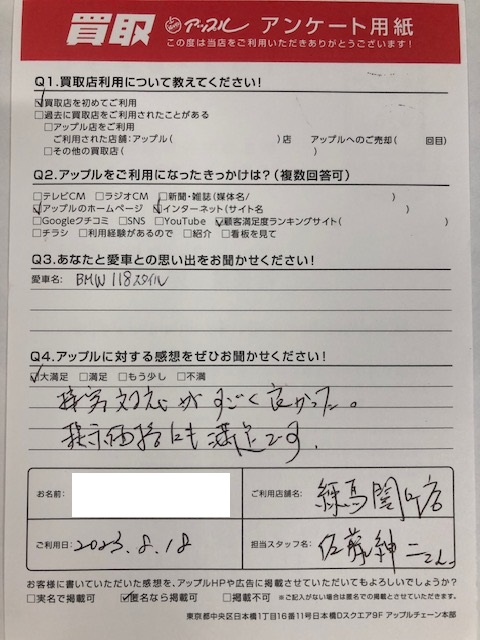 買取 アップル アンケート用紙
この度は当店をご利用いただきありがとうございます!
Q1.買取店利用について教えてください!
☑買取店を初めてご利用
□過去に買取店をご利用されたことがある
□アップル店をご利用
ご利用された店舗:アップル( )店 アップルへのご売却( 回目)
□その他の買取店( )
Q2.アップルをご利用になったきっかけは?(複数回答可)
□テレビCM □ラジオCM □新聞・雑誌(媒体名/ )
☑アップルのホームページ ☑インターネット(サイト名 )
□Googleクチコミ □SNS □YouTube ☑顧客満足度ランキングサイト( )
□チラシ □利用経験があるので □紹介 □看板を見て
Q3.あなたと愛車との思い出をお聞かせください!
愛車名: BMW 118 スタイル
Q4.アップルに対する感想をぜひお聞かせください!
☑大満足 □満足 □もう少し □不満
接客対応がすごく良かった。
提示価格にも満足です.
お名前:
ご利用店舗名: 練馬関町店
ご利用日: 2023.8.18
担当スタッフ名: 佐藤紳二さん
お客様に書いていただいた感想を、アップルHPや広告に掲載させていただいてもよろしいでしょうか?
□実名で掲載可 ☑匿名なら掲載可 □掲載不可 ※ご記入がない場合は匿名での掲載とさせていただきます。
東京都中央区日本橋1丁目16番11号日本橋Dスクエア9F アップルチェーン本部